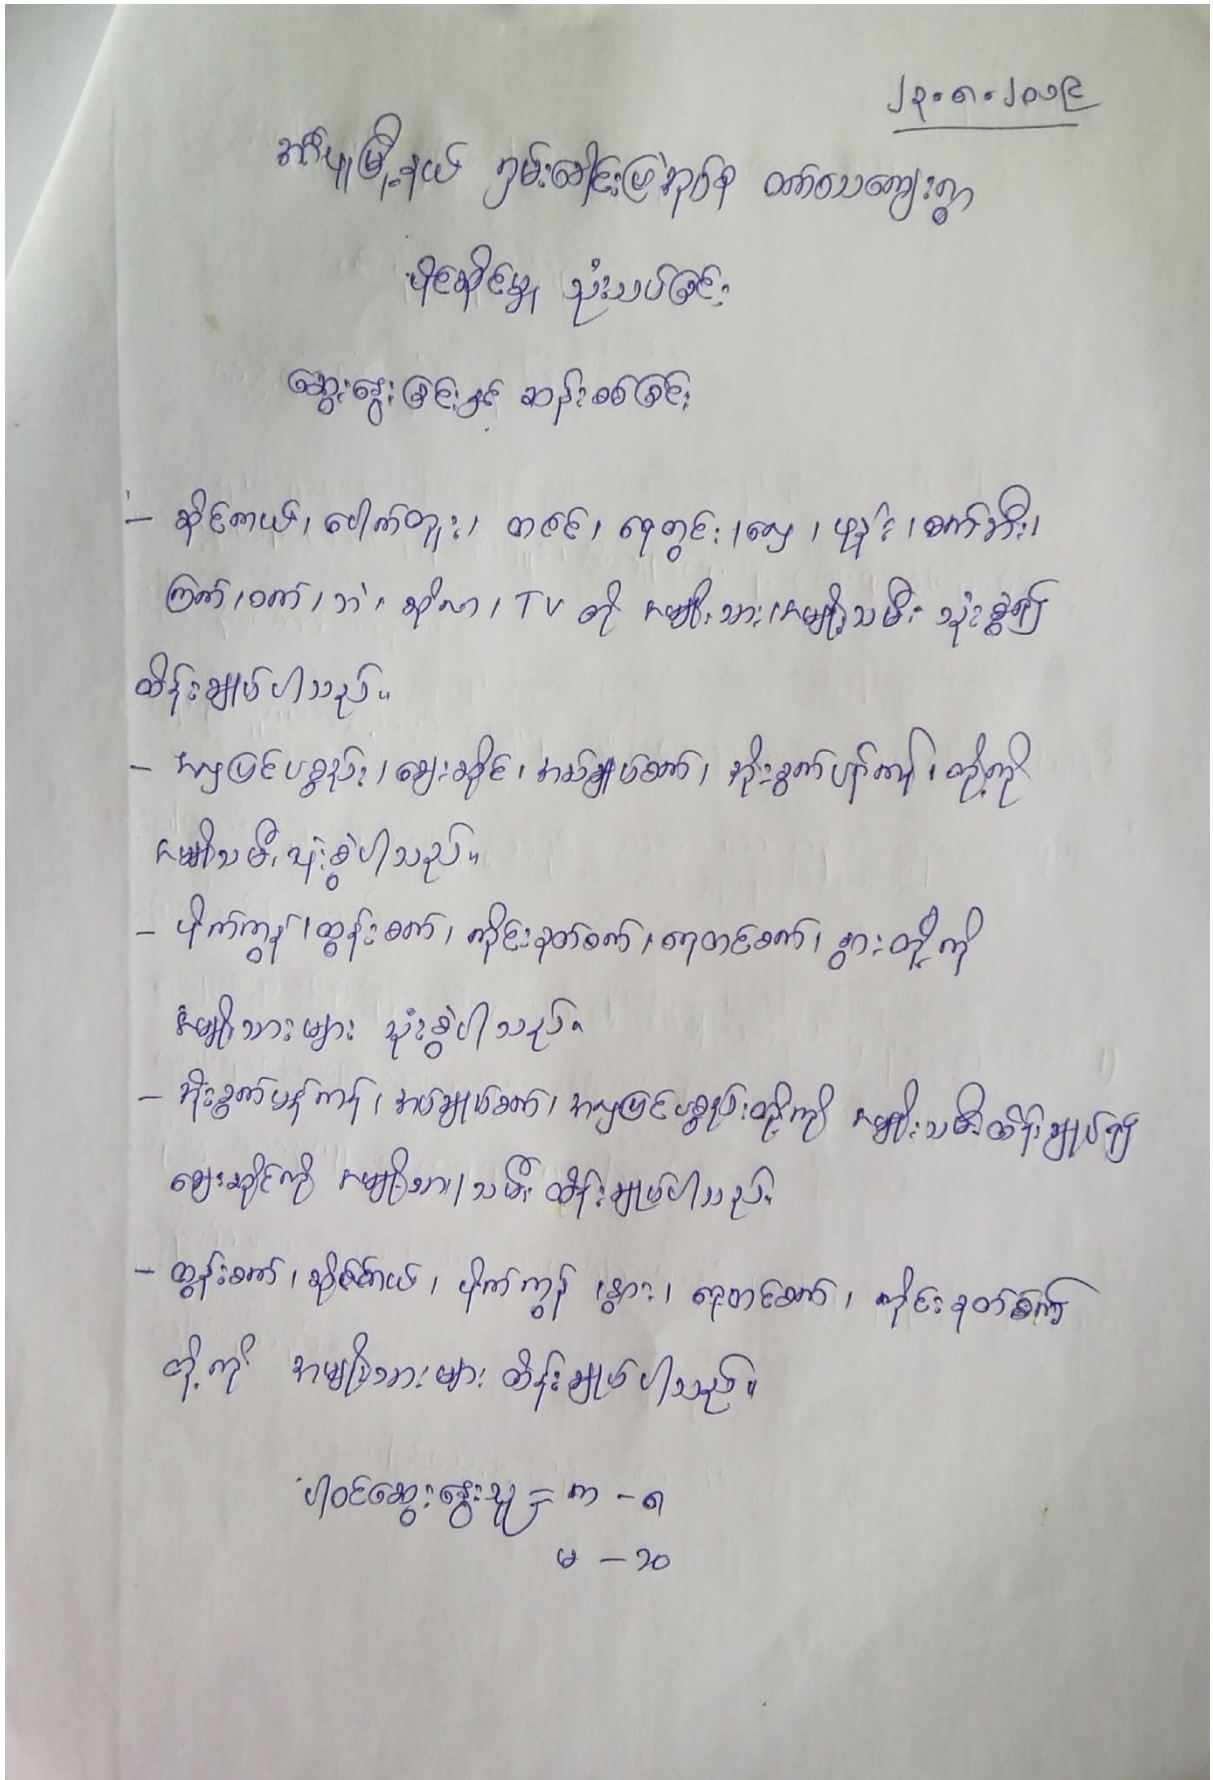 ၂၃.၈.၂၀၁၉
အင်္ဂပူမြို့နယ် ရှမ်းခေါင်းမြဲအုပ်စု ထော်လေကျေးရွာ
ပိုင်ဆိုင်မှု သုံးသပ်ခြင်း
ဆွေးနွေးခြင်းနှင့် ဆန်းစစ်ခြင်း
- ဆိုင်ကယ်၊ ပေါက်တူး၊ တစင်၊ ရေတွင်း၊ လှေ၊ ဖုန်း၊ စက်ဘီး၊
ကြက်၊ ဝက်၊ ဘဲ၊ ဆိုလာ၊ TV တို့ အမျိုးသား၊ အမျိုးသမီး သုံးစွဲ၍
ထိန်းချုပ်ပါသည်။
- အလှပြင်ပစ္စည်း၊ ဈေးဆိုင်၊ အပ်ချုပ်စက်၊ အိုးခွက်ပန်းကန်၊ တို့ကို
အမျိုးသမီး သုံးစွဲပါသည်။
- ပိုက်ကွန်၊ ထွန်စက်၊ ကိုင်းခုတ်စက်၊ ရေတင်စက်၊ နွားတို့ကို
အမျိုးသားများ သုံးစွဲပါသည်။
- အိုးခွက်ပန်းကန်၊ အပ်ချုပ်စက်၊ အလှပြင်ပစ္စည်းတို့ကို အမျိုးသမီးထိန်းချုပ်၍
ဈေးဆိုင်ကို အမျိုးသား၊ သမီး ထိန်းချုပ်ပါသည်။
- ထွန်းစက်၊ ဆိုင်ကယ်၊ ပိုက်ကွန်၊ နွား၊ ရေတင်စက်၊ ကိုင်းခုတ်စက်
တို့ကို အမျိုးသားများ ထိန်းချုပ်ပါသည်။
ပါဝင်ဆွေးနွေးသူ = က - ၈
မ - ၁၀